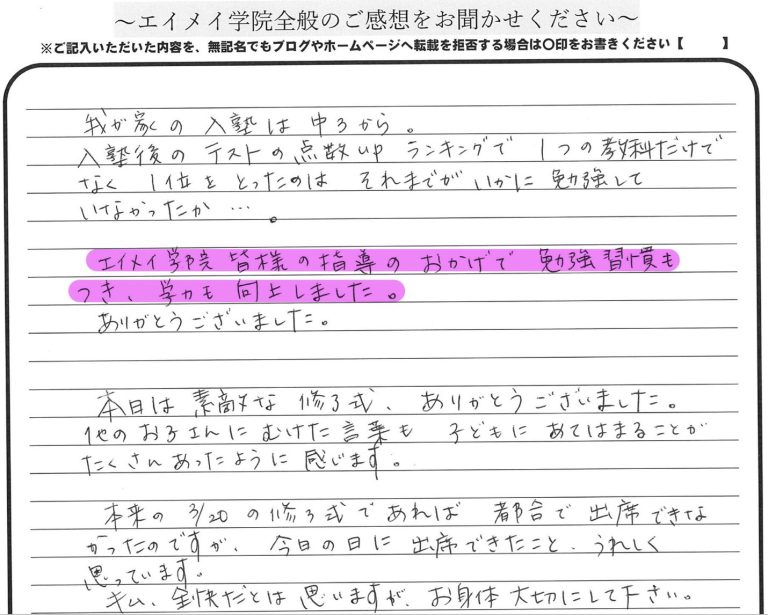 ～エイメイ学院全般のご感想をお聞かせください～
※ご記入いただいた内容を、無記名でもブログやホームページへ転載を拒否する場合は○印をお書きください【　　】
我が家の入塾は中3から。
入塾後のテストの点数up ランキングで 1つの教科だけで
なく 1位をとったのは それまでがいかに勉強して
いなかったか…。
エイメイ学院 皆様の指導のおかげで 勉強習慣も
つき、学力も向上しました。
ありがとうございました。
本日は素敵な修了式、ありがとうございました。
他のお子さんにむけた言葉も 子どもにあてはまることが
たくさんあったように感じます。
本来の3/20の修了式であれば 都合で出席できな
かったのですが、今日の日に出席できたこと、うれしく
思っています。
キム、全快だとは思いますが、お身体大切にして下さい。